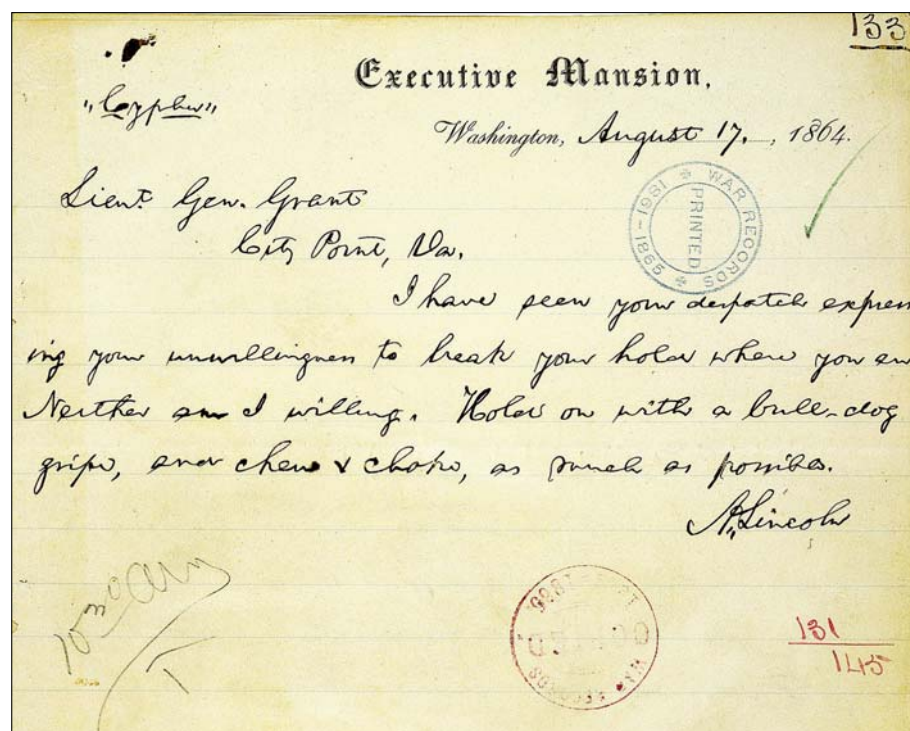 133
Executive Mansion,
"Cypher"
Washington, August 17., 1864.
Lieut. Gen. Grant
City Point, Va.
WAR RECORDS
1865-1981
PRINTED
I have seen your despatch express
ing your unwillingness to break your hold where you are
Neither am I willing. Hold on with a bull-dog
gripe, and chew & choke, as much as possible.
A. Lincoln
10 30 AM
COPIED
WAR RECORDS
131
145